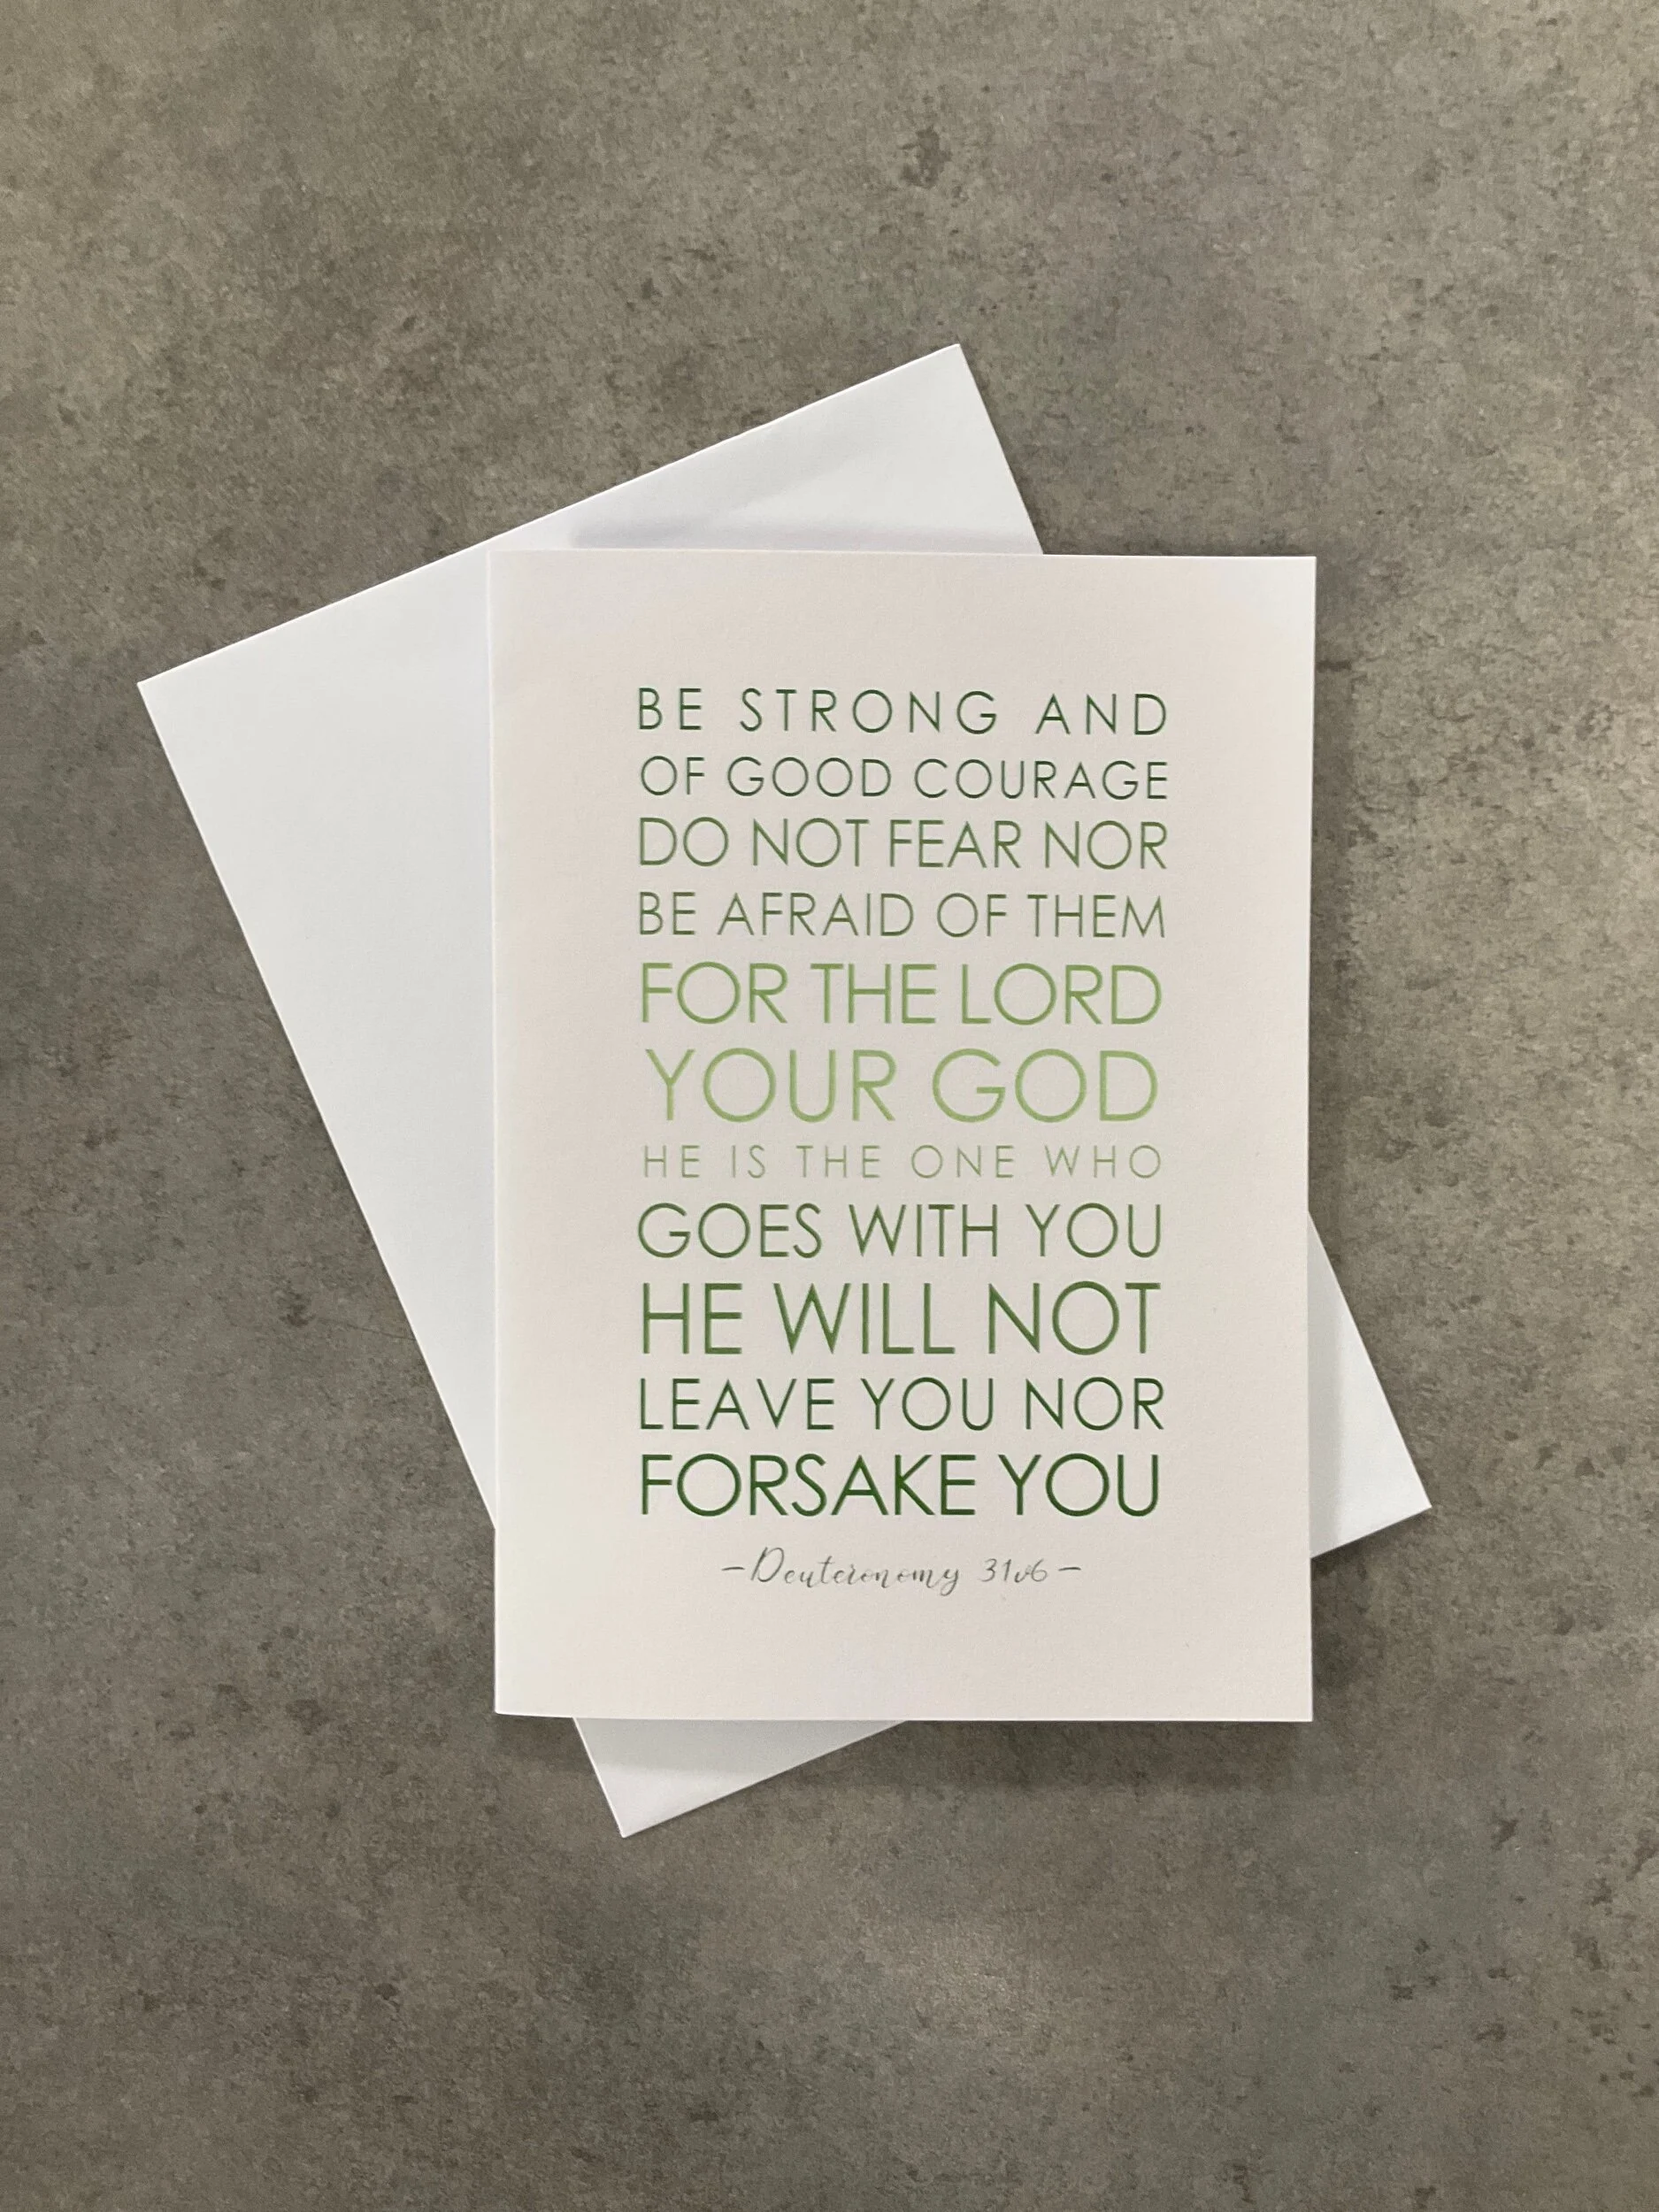 BE STRONG AND
OF GOOD COURAGE
DO NOT FEAR NOR
BE AFRAID OF THEM
FOR THE LORD
YOUR GOD
HE IS THE ONE WHO
GOES WITH YOU
HE WILL NOT
LEAVE YOU NOR
FORSAKE YOU
–Deuteronomy 31v6–